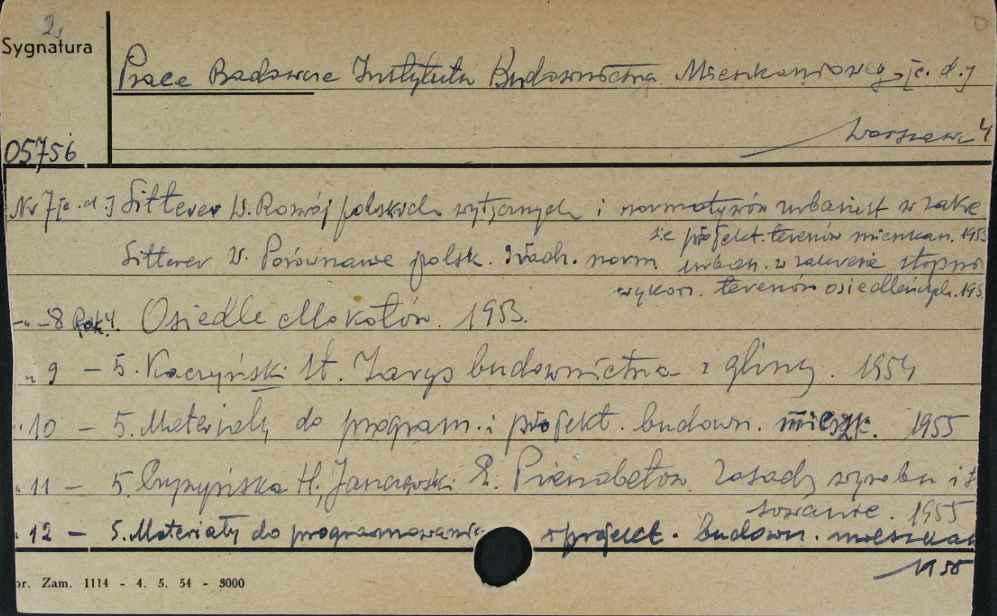 2.
Sygnatura
Prace Badawcze Instytutu Budownictwa Mieszkaniowego, [c. d.]
Warszawa 4
05756
Nr 7 [c. d.] Sitterer W. Rozwój polskich wytycznych i normatywów urbanist w zakre
sie projekt. terenów mieszkan. 1953
Sitterer W. Porównanie polsk. i radz. norm urban. w zakresie stopnia
wykorz. terenów osiedleńczych. 195
" – 8 Rok 4. Osiedle Mokotów. 1953.
" 9 – 5. Kaczyński St. Zarys budownictwa z gliny. 1954
" 10 – 5. Materiały do program. i projekt. budown. mieszk. 1955
" 11 – 5. H., E. Pianobeton. Zasady wyrobu i s
sowanie. 1955
" 12 – 5. Materiały do programowania i projekt. budown. mieszkan
1955
or. Zam. 1114 - 4. 5. 54 - 3000